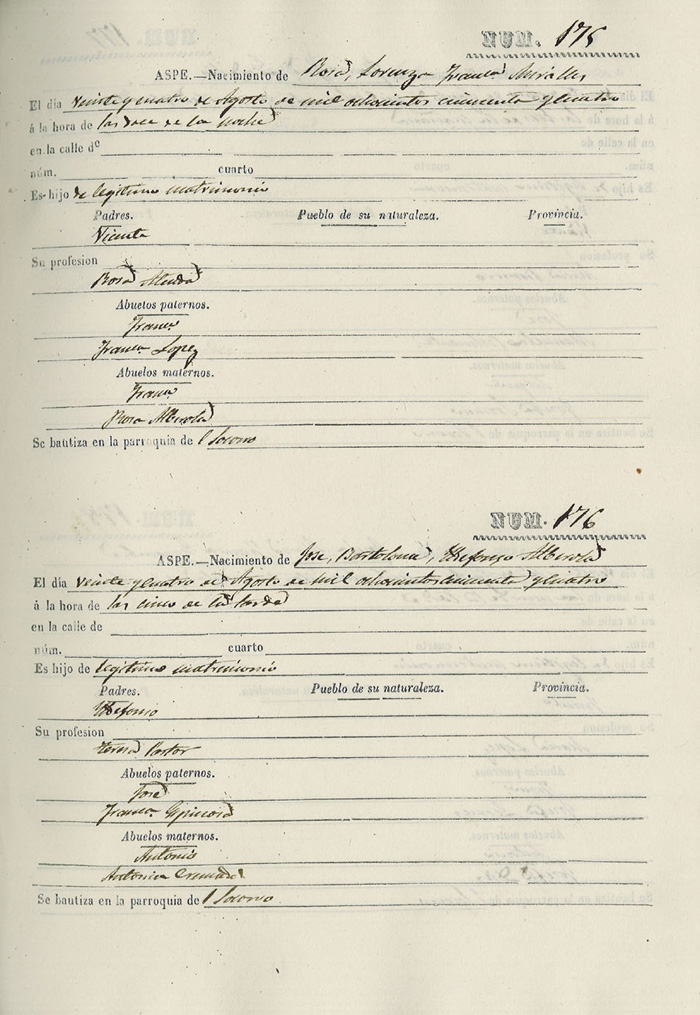 NUM. 175
ASPE.—Nacimiento de Rosa, Lorenza Franca Miralles
El día veinte y cuatro de Agosto de mil ochocientos cincuenta y cuatro
á la hora de las doce de la noche
en la calle de
núm. cuarto
Es hijo de legitimo matrimonio
Padres. Pueblo de su naturaleza. Provincia.
Vicente
Su profesion
Rosa
Abuelos paternos.
Franco
Franca Lopez
Abuelos maternos.
Franco
Rosa Alberola
Se bautiza en la parroquia de l Socorro
NUM. 176
ASPE.—Nacimiento de Jose, Bartolome, Ildefonzo Alberola
El día veinte y cuatro de Agosto de mil ochocientos cincuenta y cuatro
á la hora de las cinco de la tarde
en la calle de
núm. cuarto
Es hijo de legitimo matrimonio
Padres. Pueblo de su naturaleza. Provincia.
Ildefonso
Su profesion
Teresa Pastor
Abuelos paternos.
José
Franca Espinosa
Abuelos maternos.
Antonio
Antonia Cremades
Se bautiza en la parroquia de l Socorro